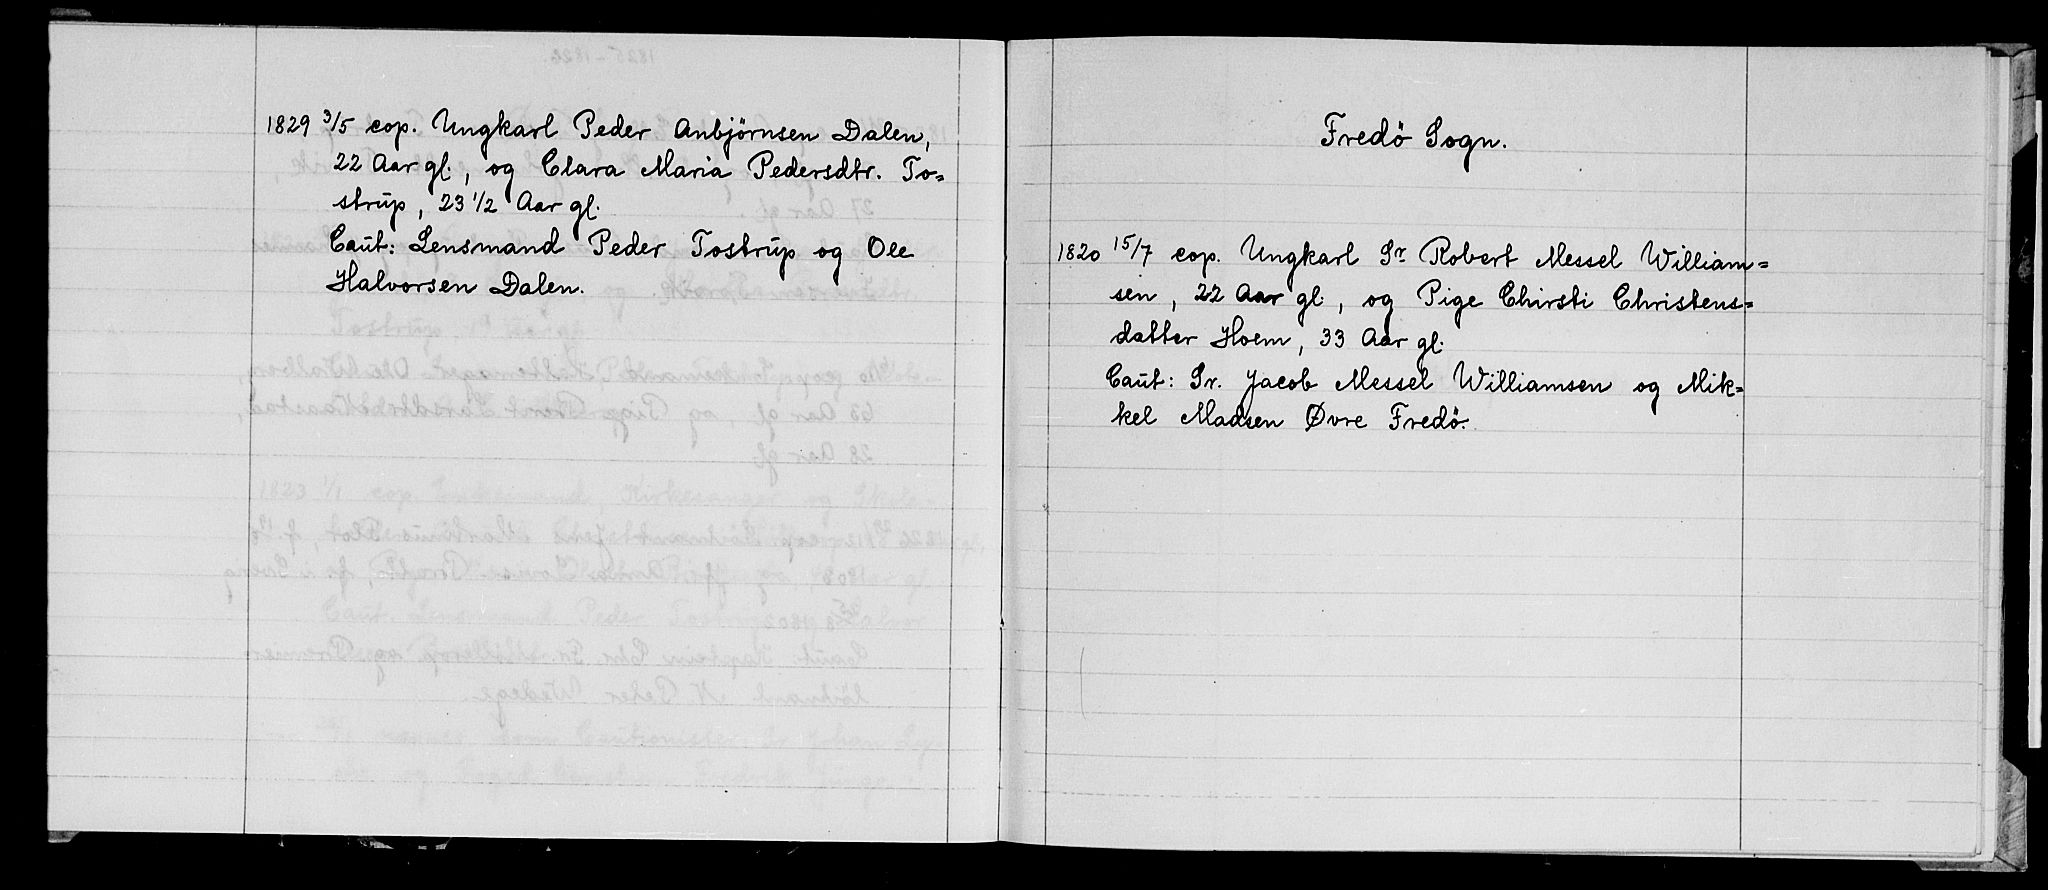 1829 3/5 cop. Ungkarl Peder Anbjörnsen Dalen,
22 Aar gl., og Clara Maria Pedersdtr. To=
strup, 23 1/2 Aar gl.
Caut: Lensmand Peder Tostrup og Ole
Halvorsen Dalen.
Fredö Sogn.
1820 15/7 cop. Ungkarl Sr Robert Messel William=
sen, 22 Aar gl., og Pige Chirsti Christens=
datter Hoem, 33 Aar gl.
Caut: Sr. Jacob Messel Williamsen og Mik=
kel Madsen Øvre Fredö.